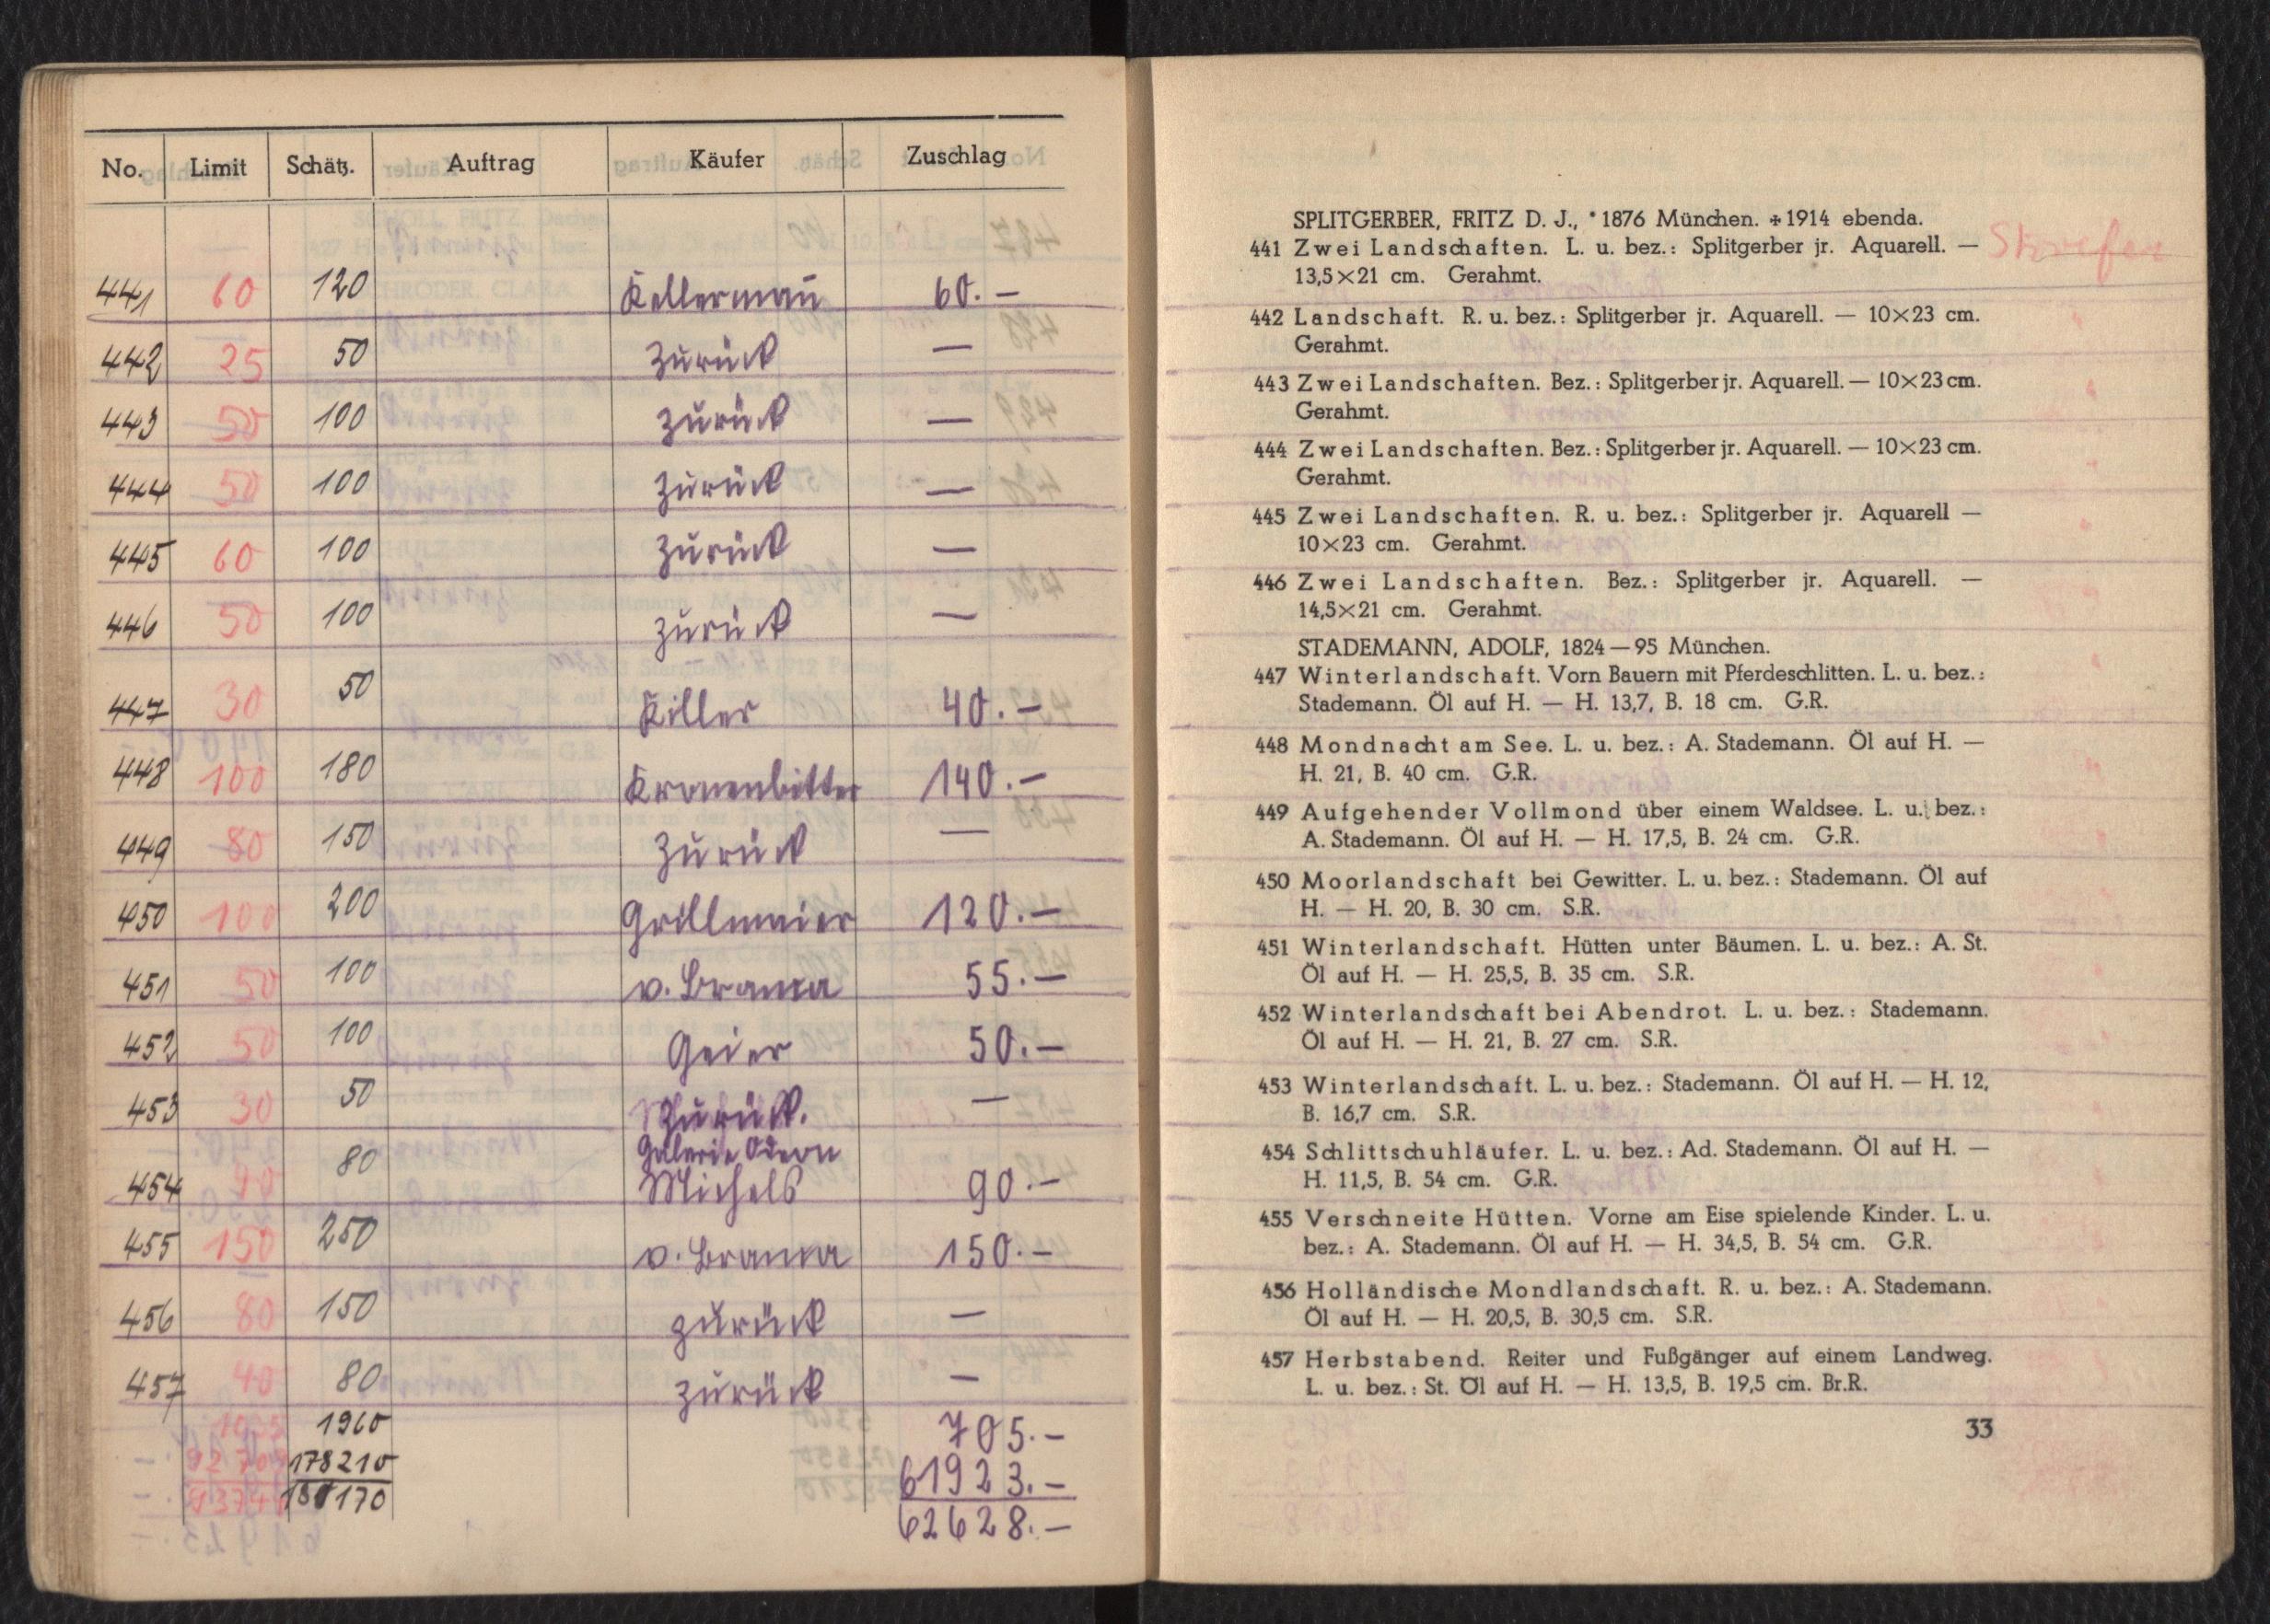 No. Limit Schätz. Auftrag Käufer Zuschlag
441 60 120 Kellermañ 60.—
442 25 50 zurück —
443 50 100 zurück —
444 50 100 zurück —
445 60 100 zurück —
446 50 100 zurück —
447 30 50 Killer 40.—
448 100 180 Kronenbitter 140.—
449 80 150 zurück —
450 100 200 Grillmaier 120.—
451 50 100 v. Branca 55.—
452 50 100 Geier 50.—
453 30 50 Zurück. —
Galerie Odeon
454 90 80 Michels 90.—
455 150 250 v. Branca 150.—
456 80 150 zurück —
457 40 80 zurück —
1960 705.—
178210 61923.—
170 62628.—
SPLITGERBER, FRITZ D. J., *1876 München. +1914 ebenda.
441 Zwei Landschaften. L. u. bez.: Splitgerber jr. Aquarell. —
13,5×21 cm. Gerahmt.
442 Landschaft. R. u. bez.: Splitgerber jr. Aquarell. — 10×23 cm.
Gerahmt.
443 Zwei Landschaften. Bez.: Splitgerber jr. Aquarell. — 10×23 cm.
Gerahmt.
444 Zwei Landschaften. Bez.: Splitgerber jr. Aquarell. — 10×23 cm.
Gerahmt.
445 Zwei Landschaften. R. u. bez.: Splitgerber jr. Aquarell —
10×23 cm. Gerahmt.
446 Zwei Landschaften. Bez.: Splitgerber jr. Aquarell. —
14,5×21 cm. Gerahmt.
STADEMANN, ADOLF, 1824—95 München.
447 Winterlandschaft. Vorn Bauern mit Pferdeschlitten. L. u. bez.:
Stademann. Öl auf H. — H. 13,7, B. 18 cm. G.R.
448 Mondnacht am See. L. u. bez.: A. Stademann. Öl auf H. —
H. 21, B. 40 cm. G.R.
449 Aufgehender Vollmond über einem Waldsee. L. u. bez.:
A. Stademann. Öl auf H. — H. 17,5, B. 24 cm. G.R.
450 Moorlandschaft bei Gewitter. L. u. bez.: Stademann. Öl auf
H. — H. 20, B. 30 cm. S.R.
451 Winterlandschaft. Hütten unter Bäumen. L. u. bez.: A. St.
Öl auf H. — H. 25,5, B. 35 cm. S.R.
452 Winterlandschaft bei Abendrot. L. u. bez.: Stademann.
Öl auf H. — H. 21, B. 27 cm. S.R.
453 Winterlandschaft. L. u. bez.: Stademann. Öl auf H. — H. 12,
B. 16,7 cm. S.R.
454 Schlittschuhläufer. L. u. bez.: Ad. Stademann. Öl auf H. —
H. 11,5, B. 54 cm. G.R.
455 Verschneite Hütten. Vorne am Eise spielende Kinder. L. u.
bez.: A. Stademann. Öl auf H. — H. 34,5, B. 54 cm. G.R.
456 Holländische Mondlandschaft. R. u. bez.: A. Stademann.
Öl auf H. — H. 20,5, B. 30,5 cm. S.R.
457 Herbstabend. Reiter und Fußgänger auf einem Landweg.
L. u. bez.: St. Öl auf H. — H. 13,5, B. 19,5 cm. Br.R.
33